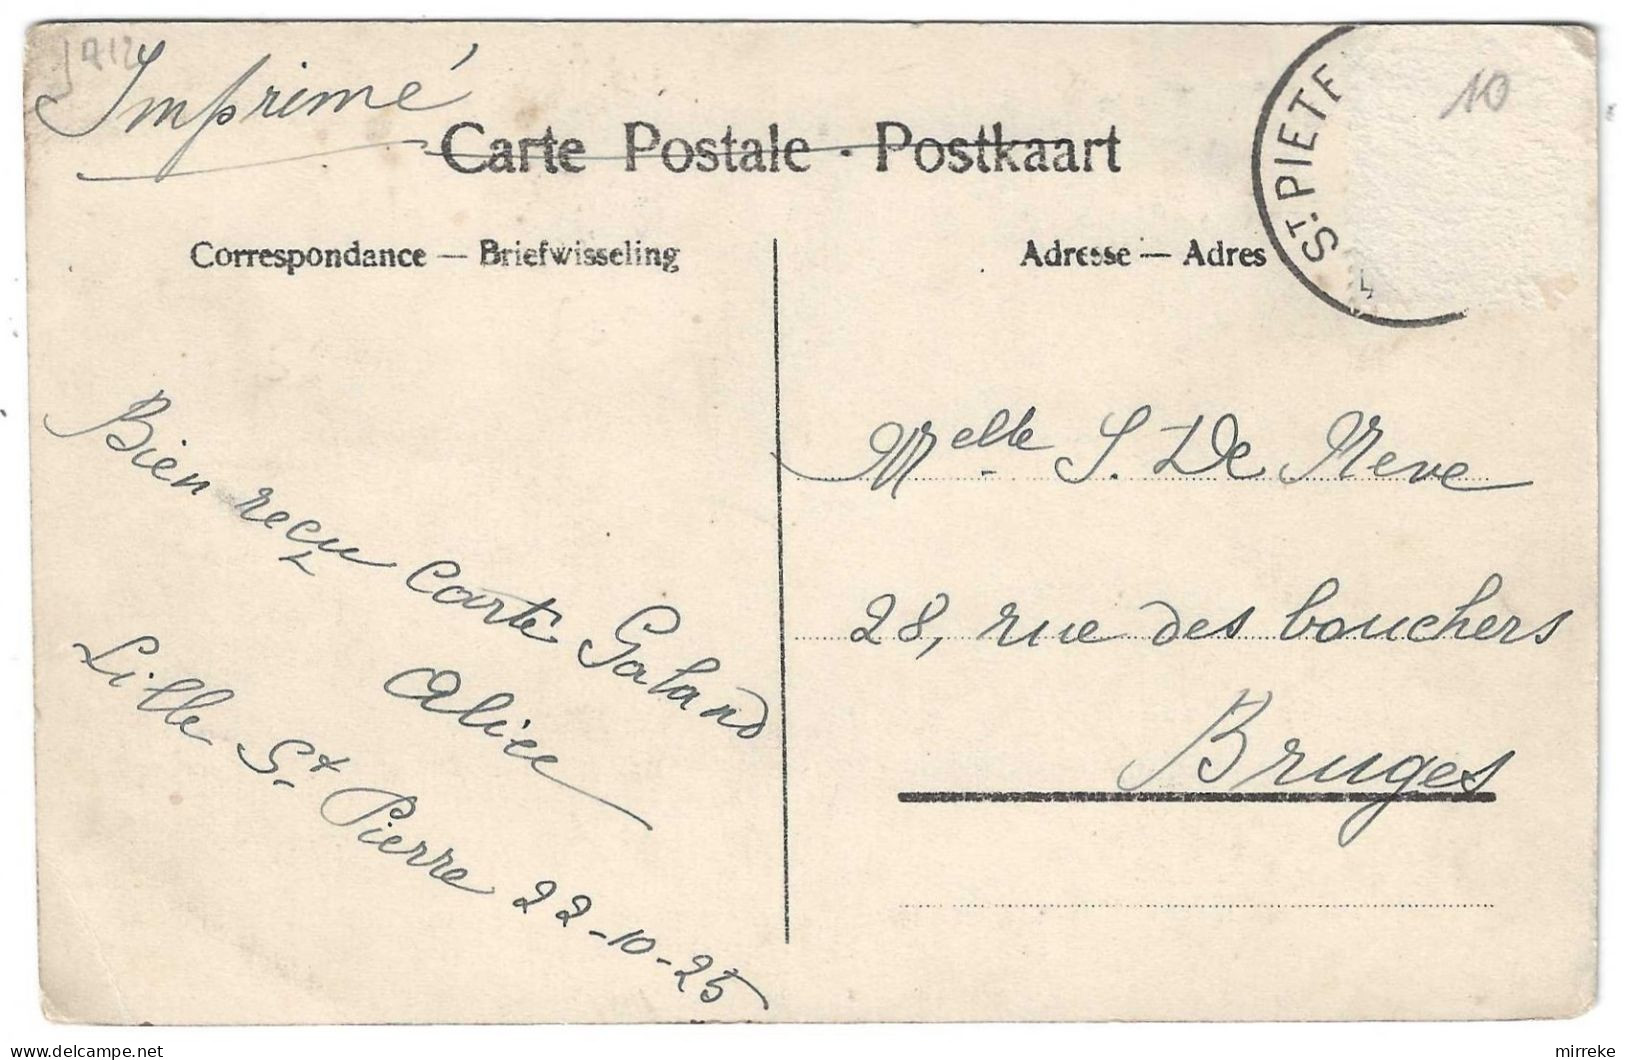 Imprimé
10
Carte Postale - Postkaart
ST PIET
Correspondance — Briefwisseling
Adresse — Adres
Bien reçu carte Galand
Alice
Lille St Pierre 22-10-25
Melle S. De Neve
28, rue des bouchers
Bruges
mirreke
delcampe.net